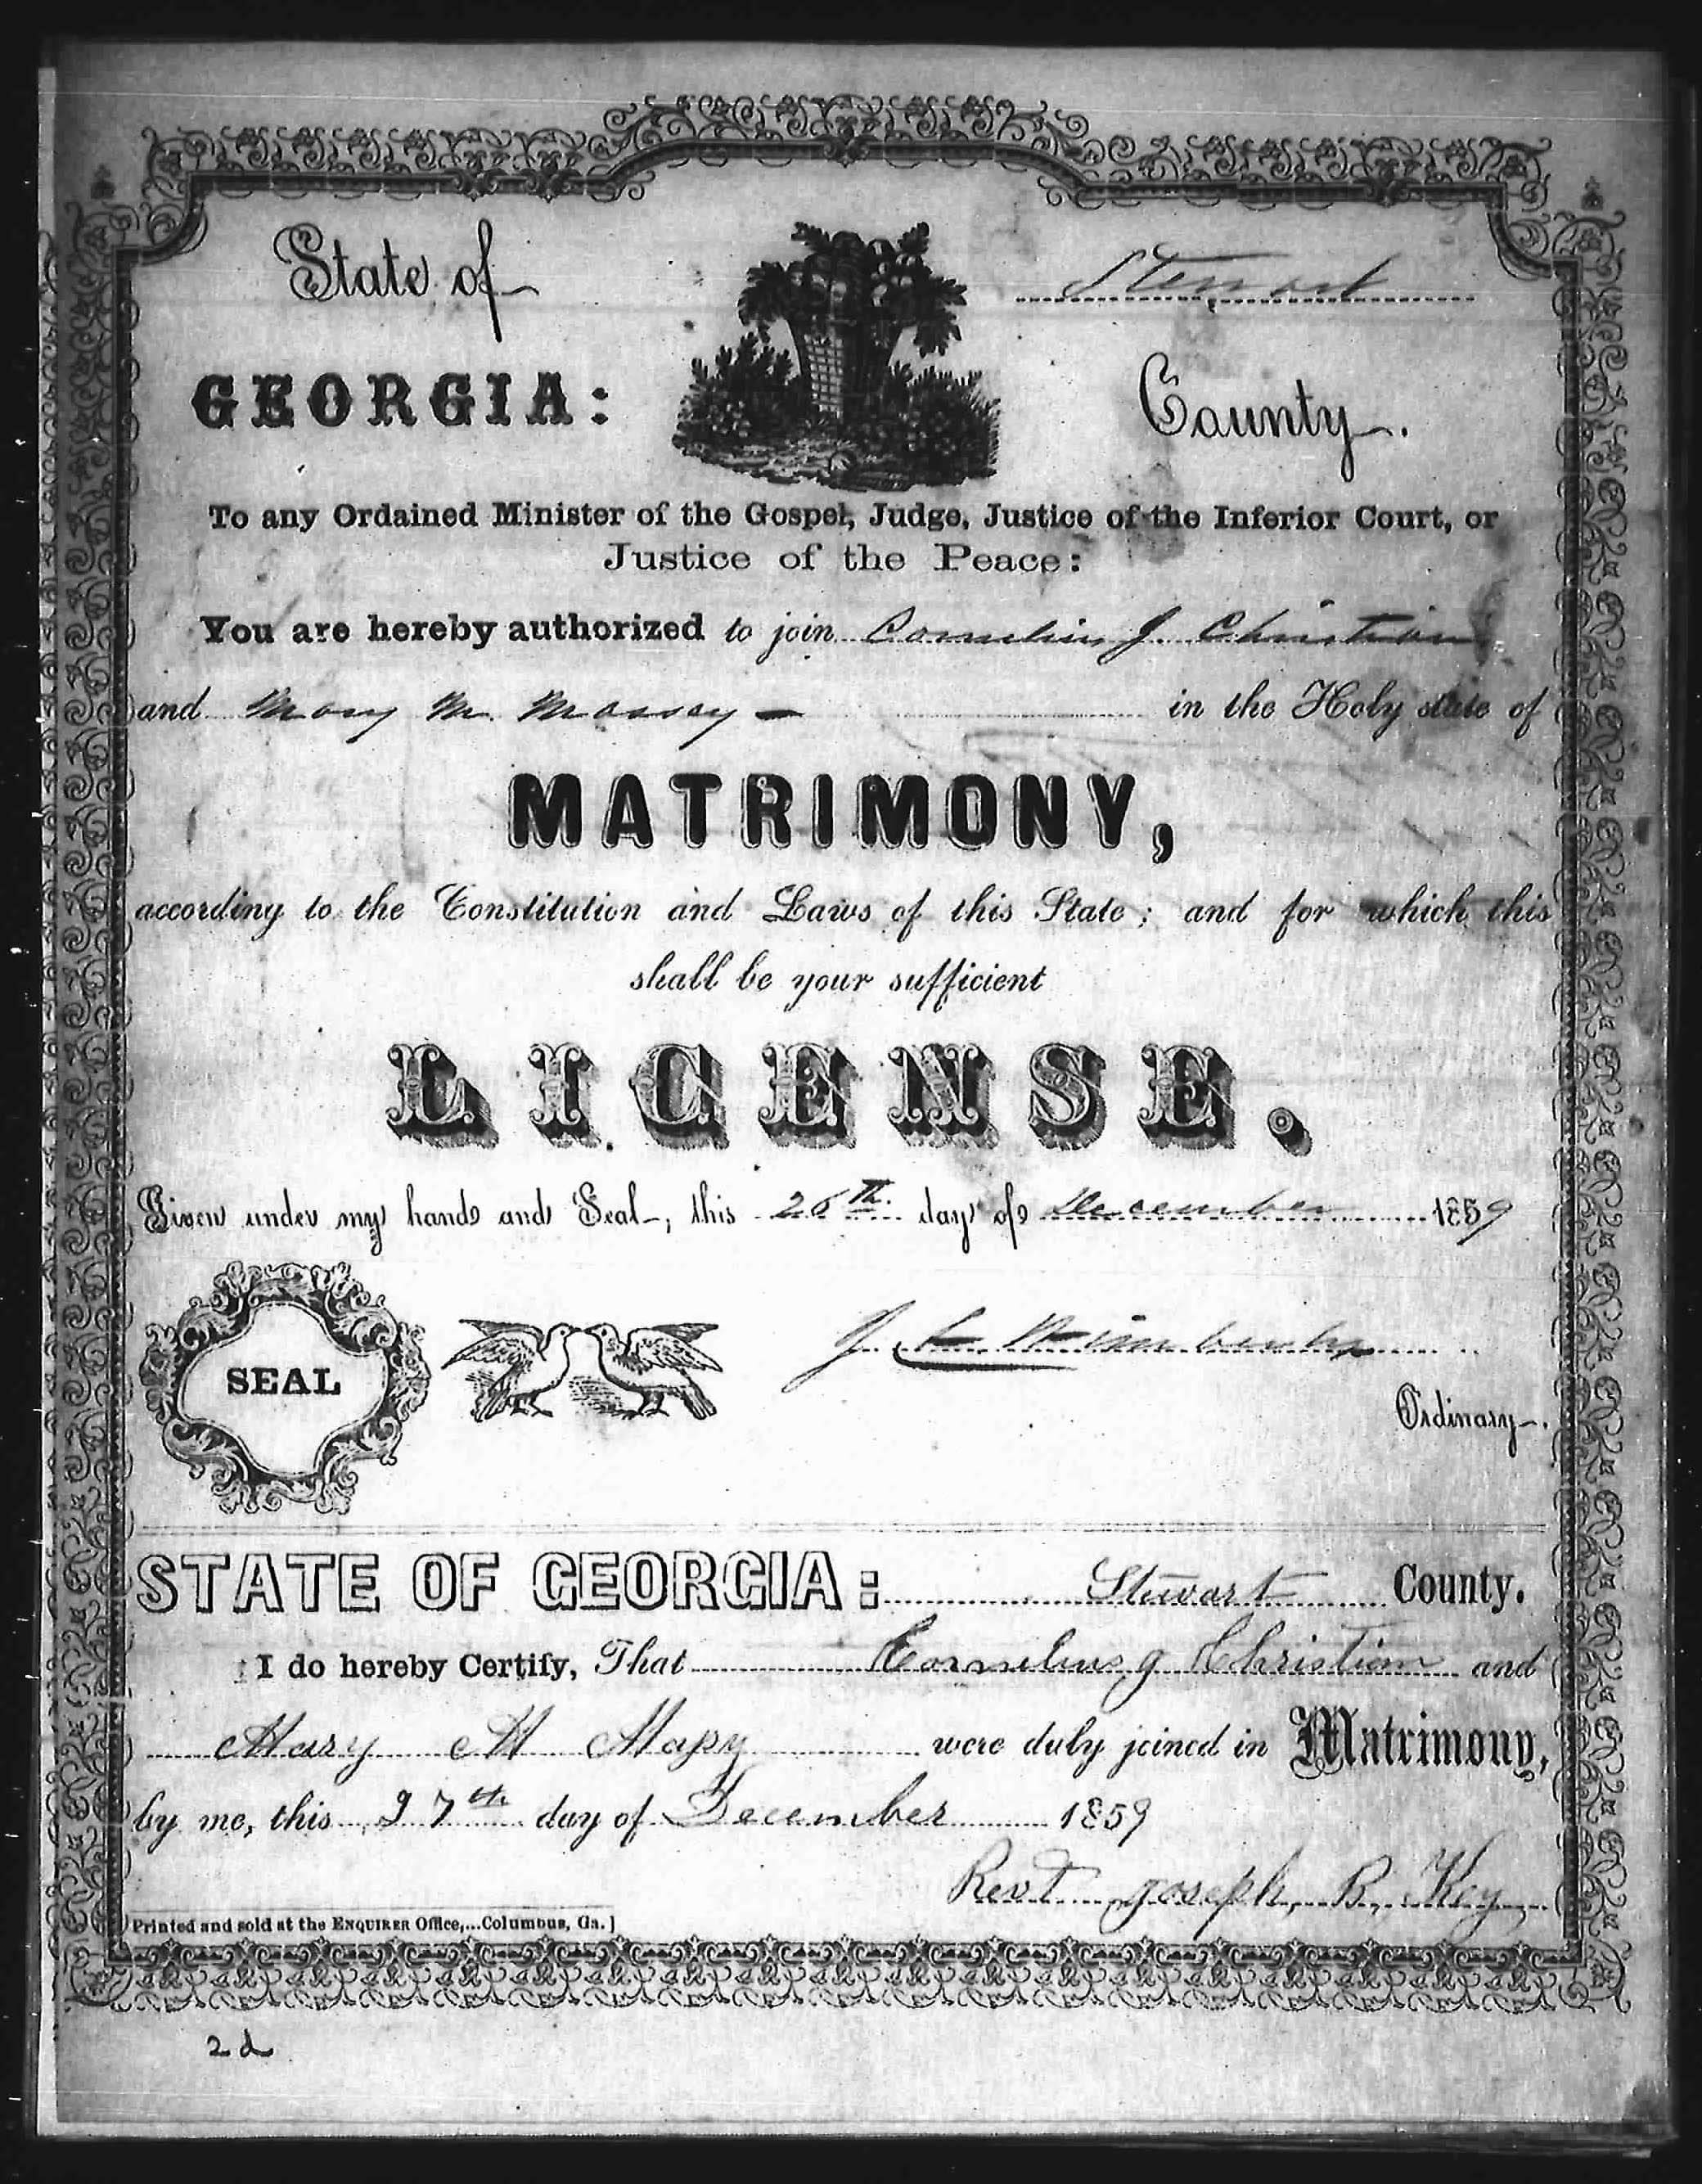 State of
Stewart
GEORGIA:
County.
To any Ordained Minister of the Gospel, Judge, Justice of the Inferior Court, or
Justice of the Peace:
You are hereby authorized to join Cornelius J. Christian
and Mary M. Massey — in the Holy state of
MATRIMONY,
according to the Constitution and Laws of this State; and for which this
shall be your sufficient
LICENSE.
Given under my hand and Seal, this 26th. day of December 1859
SEAL
J. Wimberly
Ordinary.
STATE OF GEORGIA: Stewart County.
I do hereby Certify, That Cornelius J Christian and
Mary M Massy were duly joined in Matrimony,
by me, this 27th day of December 1859
Revd Joseph, B, Key
Printed and sold at the ENQUIRER Office,...Columbus, Ga.]
2d